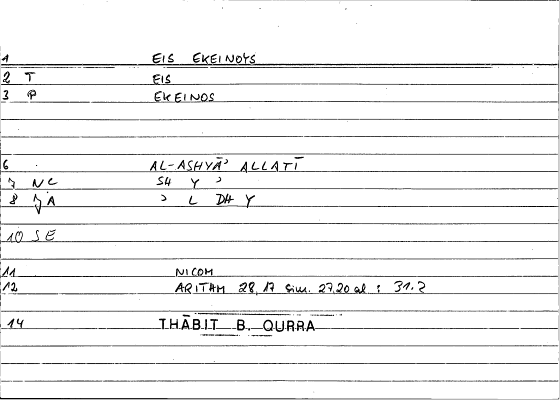 1 EIS EKEINOYS
2 T EIS
3 P EKEINOS
6 AL-ASHYĀʾ ALLATĪ
7 NC SH Y ʾ
8 JA ʾ L DH Y
10 SE
11 NICOM
12 ARITHM 28,17 sim. 27,20 al : 31.2
14 THĀBIT B. QURRA